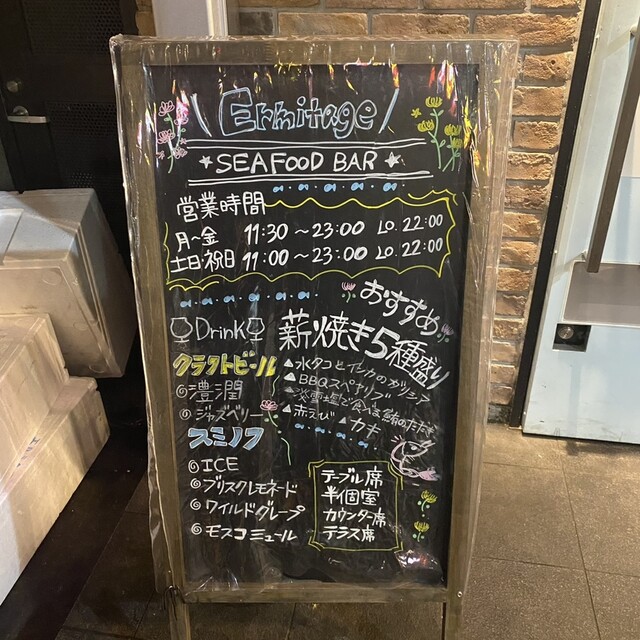 Ermitage
SEAFOOD BAR
営業時間
月~金 11:30 ~ 23:00 LO. 22:00
土日祝日 11:00 ~ 23:00 LO. 22:00
おすすめ
薪焼き5種盛り
▲水タコとイカのガリシア
▲BBQスペアリブ
で食べる鮪のたたき
▲赤えび ▲カキ
Drink
クラフトビール
澧潤
ジャズベリー
スミノフ
ICE
ブリスクレモネード
ワイルドグレープ
モスコミュール
テーブル席
半個室
カウンター席
テラス席